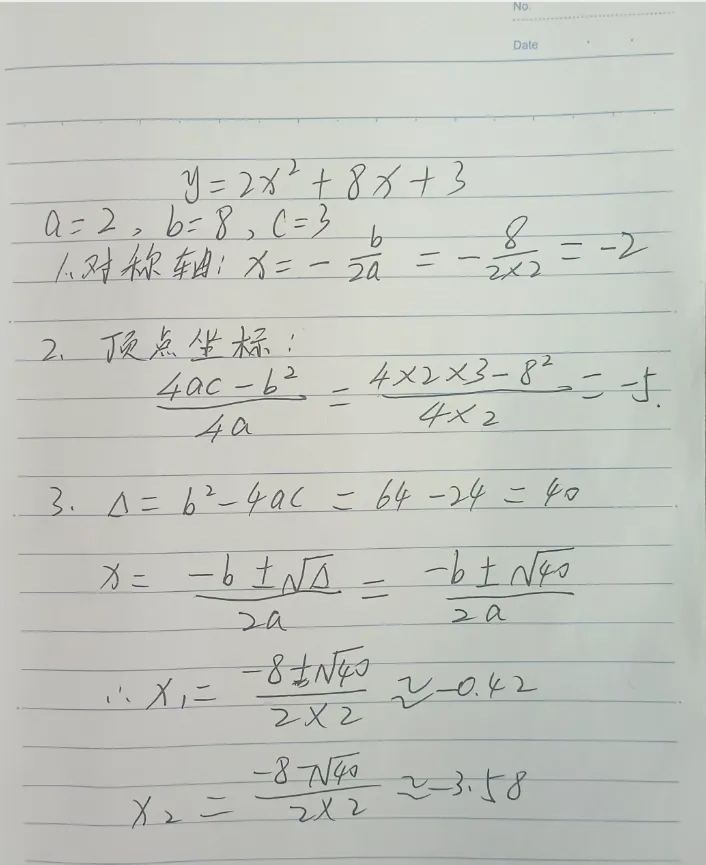 No.
Date
y=2x²+8x+3
a=2, b=8, c=3
1. 对称轴: x=-b/2a = -8/2×2 = -2
2. 顶点坐标:
4ac-b²/4a = 4×2×3-8²/4×2 = -5.
3. Δ= b²-4ac = 64-24 = 40
x= -b±√Δ/2a = -b±√40/2a
∴ x₁= -8±√40/2×2 ≈-0.42
x₂ = -8-√40/2×2 ≈-3.58